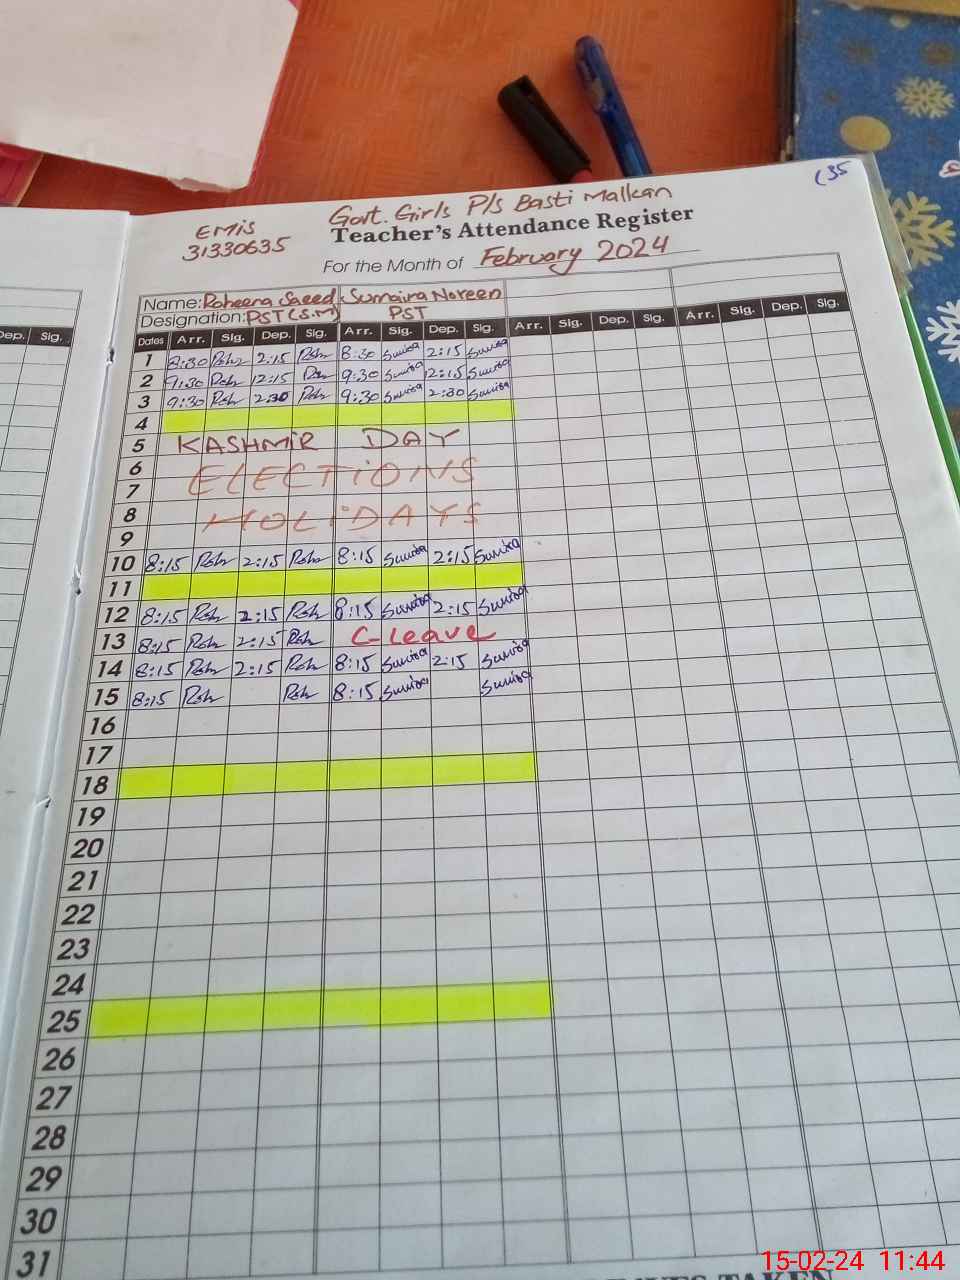 135
Govt. Girls P/S Basti Malkan
EMIS
31330635
Teacher's Attendance Register
For the Month of February 2024
Name: Raheena Saeed Sumaira Noreen
Designation: PST (S.M) PST
ep. Sig.
Dates Arr. Sig. Dep. Sig. Arr. Sig. Dep. Sig. Arr. Sig. Dep. Sig. Arr. Sig. Dep. Sig.
1 8:30 2:15 8:30 2:15
2 9:30 12:15 9:30 12:15
3 9:30 2:30 9:30 2:30
4
5 KASHMIR DAY
6 ELECTIONS
7
8 HOLIDAYS
9
10 8:15 2:15 8:15 2:15
11
12 8:15 2:15 8:15 2:15
13 8:15 2:15 C-Leave
14 8:15 2:15 8:15 2:15
15 8:15 8:15
16
17
18
19
20
21
22
23
24
25
26
27
28
29
30
31
15-02-24 11:44